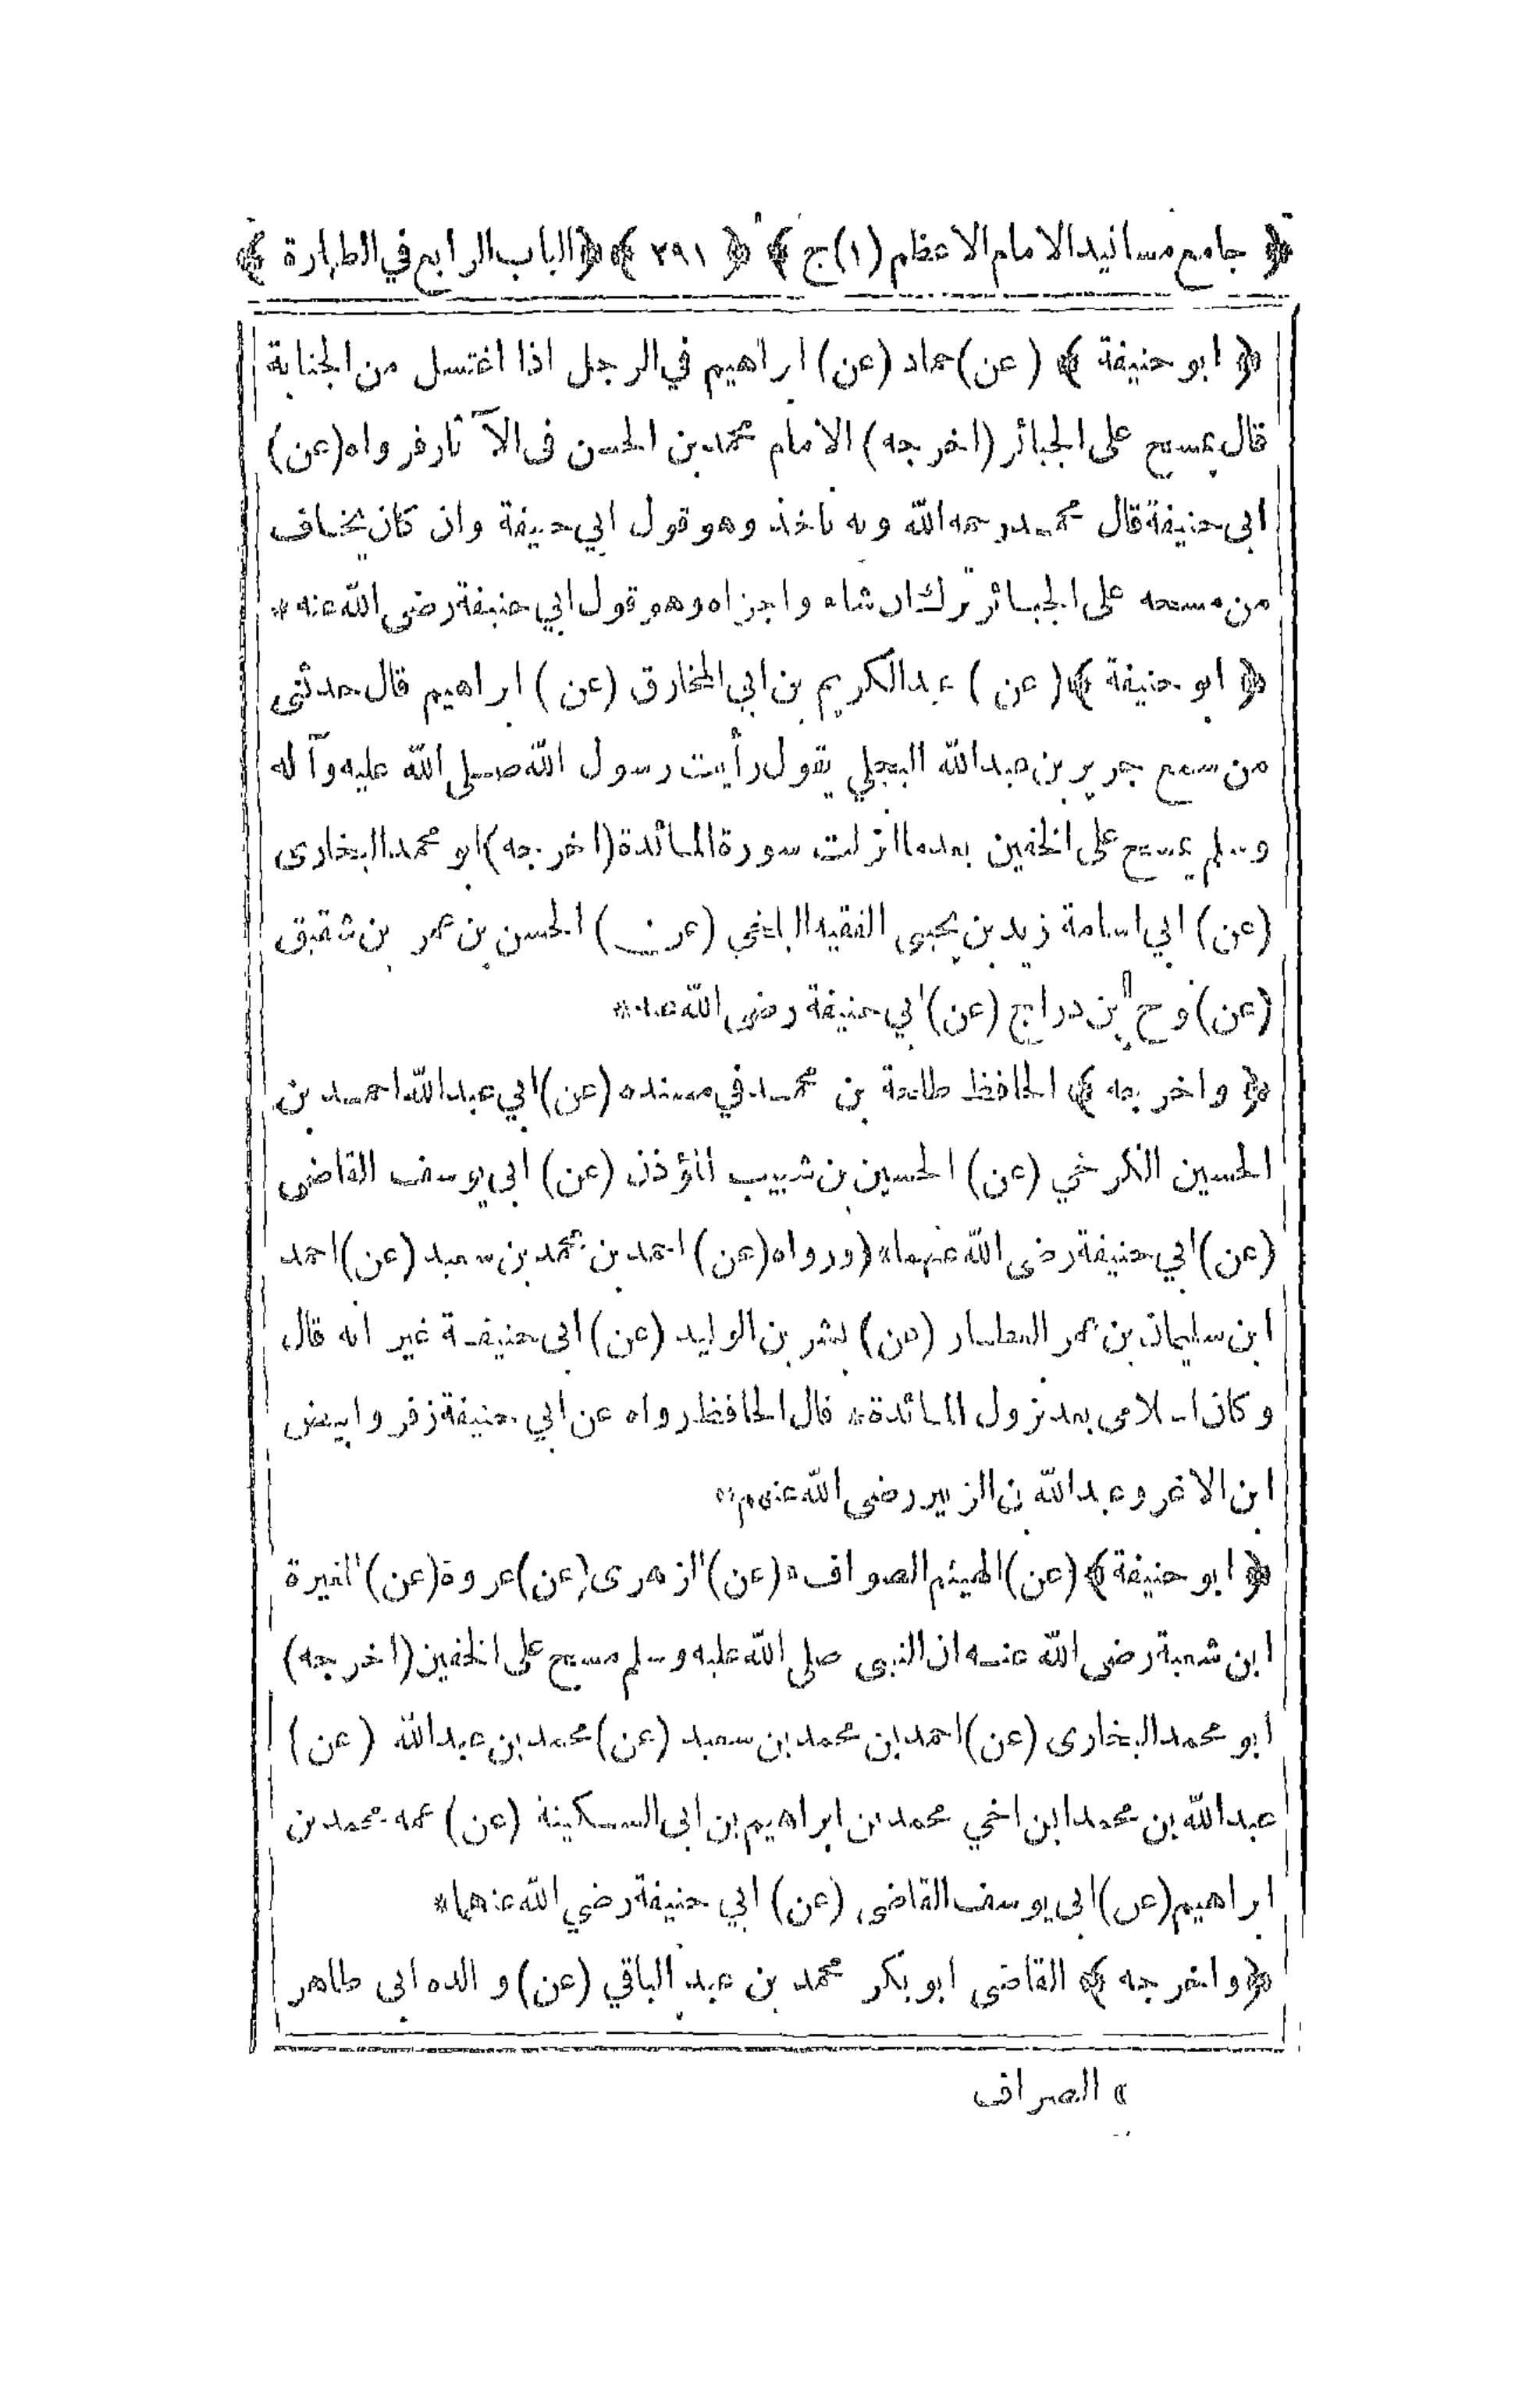 ﴿ جامع مسانيد الامام الاعظم (١) ج ﴾ ﴿ ٢٩١ ﴾ ﴿ الباب الرابع في الطهارة ﴾
﴿ ابو حنيفة ﴾ (عن) حماد (عن) ابراهيم في الرجل اذا اغتسل من الجنابة
قال يمسح على الجبائر (اخرجه) الامام محمد بن الحسن فى الآثار فرواه (عن)
ابى حنيفة قال محمد رحمه الله وبه نأخذ وهو قول ابي حنيفة وان كان يخاف
من مسحه على الجبائر ترك ان شاء واجزاه وهو قول ابي حنيفة رضى الله عنه *
﴿ ابو حنيفة ﴾ (عن) عبد الكريم بن ابي المخارق (عن) ابراهيم قال حدثنى
من سمع جرير بن عبد الله البجلي يقول رأيت رسول الله صلى الله عليه وآله
وسلم يمسح على الخفين بعد ما انزلت سورة المائدة (اخرجه) ابو محمد البخارى
(عن) ابي اسامة زيد بن يحيى الفقيه البلخي (عن) الحسن بن عمر بن شقيق
(عن) نوح بن دراج (عن) ابي حنيفة رضى الله عنه *
﴿ واخرجه ﴾ الحافظ طلحة بن محمد في مسنده (عن) ابي عبد الله احمد بن
الحسين الكرخي (عن) الحسين بن شبيب المؤذن (عن) ابى يوسف القاضى
(عن) ابي حنيفة رضى الله عنهما * (ورواه (عن) احمد بن محمد بن سعيد (عن) احمد
ابن سليمان بن عمر العطار (عن) بشر بن الوليد (عن) ابى حنيفة غير انه قال
وكان اسلامى بعد نزول المائدة * قال الحافظ رواه عن ابي حنيفة زفر وابيض
ابن الاغر وعبد الله بن الزبير رضى الله عنهم *
﴿ ابو حنيفة ﴾ (عن) الهيثم الصواف * (عن) الزهرى (عن) عروة (عن) المغيرة
ابن شعبة رضى الله عنه ان النبى صلى الله عليه وسلم مسح على الخفين (اخرجه)
ابو محمد البخارى (عن) احمد بن محمد بن سعيد (عن) محمد بن عبد الله (عن)
عبد الله بن محمد ابن اخي محمد بن ابراهيم بن ابى السكينة (عن) عمه محمد بن
ابراهيم (عن) ابى يوسف القاضى (عن) ابي حنيفة رضي الله عنهما *
﴿ واخرجه ﴾ القاضى ابو بكر محمد بن عبد الباقي (عن) والده ابى طاهر
» الصراف